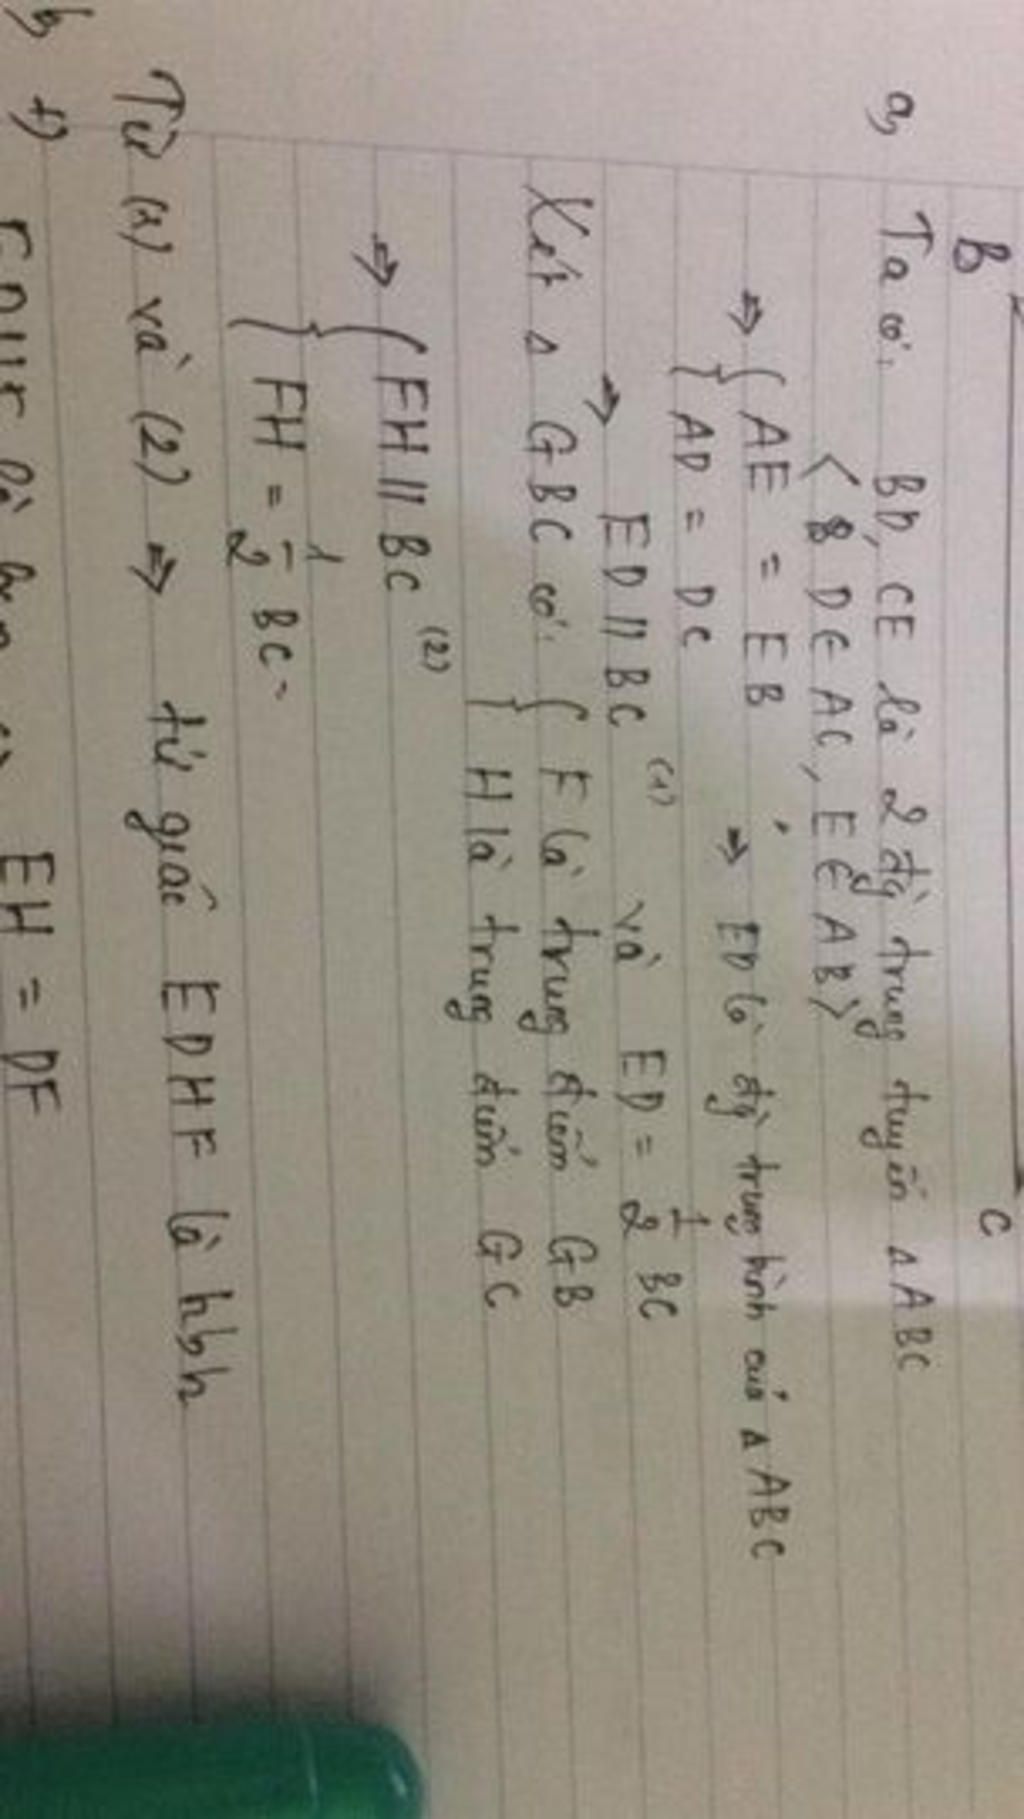 B C
a, Ta có: BD, CE là 2 đg trung tuyến Δ ABC
< D ∈ AC, E ∈ AB >
⇒ { AE = EB
AD = DC ⇒ ED là đg trung bình của Δ ABC
⇒ ED // BC (1) và ED = 1/2 BC
Xét Δ GBC có: { F là trung điểm GB
H là trung điểm GC
⇒ { FH // BC (2)
FH = 1/2 BC
Từ (1) và (2) ⇒ tứ giác EDHF là hbh
b +) EH = DF